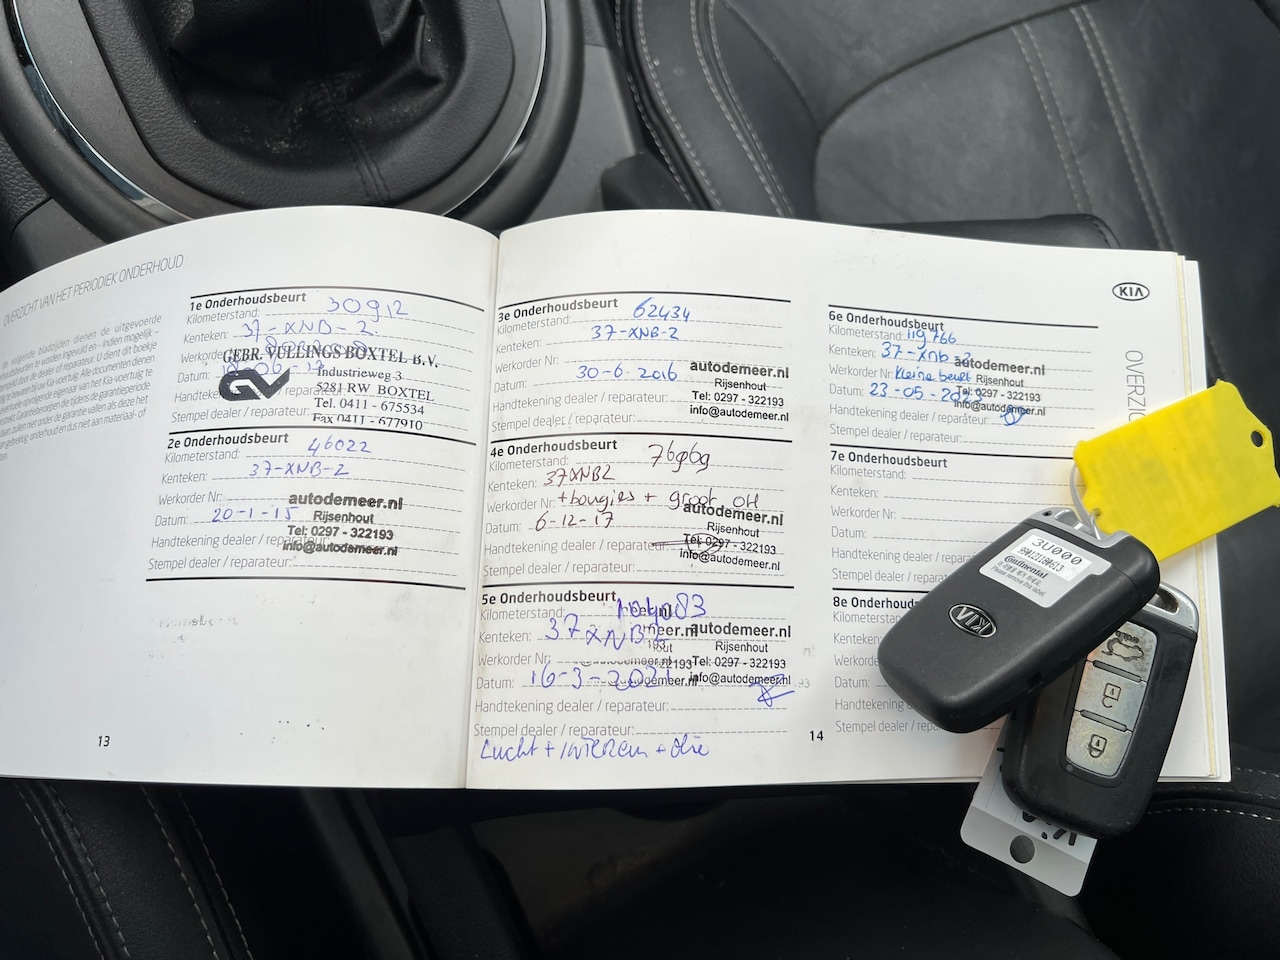 OVERZICHT VAN HET PERIODIEK ONDERHOUD
1e Onderhoudsbeurt
Kilometerstand: 30912
Kenteken: 37-XNB-2
Werkorder
GEBR. VULLINGS BOXTEL B.V.
Datum:
Industrieweg 3
5281 RW BOXTEL
Tel. 0411 - 675534
Fax 0411 - 677910
Stempel dealer / reparateur:
2e Onderhoudsbeurt
Kilometerstand: 46022
Kenteken: 37-XNB-2
Werkorder Nr:
Datum: 20-1-15
autodemeer.nl
Rijsenhout
Tel: 0297 - 322193
info@autodemeer.nl
Handtekening dealer / reparateur:
Stempel dealer / reparateur:
13
3e Onderhoudsbeurt
Kilometerstand: 62434
Kenteken: 37-XNB-2
Werkorder Nr:
Datum: 30-6-2016
autodemeer.nl
Rijsenhout
Tel: 0297 - 322193
info@autodemeer.nl
Handtekening dealer / reparateur:
Stempel dealer / reparateur:
4e Onderhoudsbeurt
Kilometerstand: 76969
Kenteken: 37XNB2
Werkorder Nr: +bougies + groot OH
Datum: 6-12-17
autodemeer.nl
Rijsenhout
Tel: 0297 - 322193
info@autodemeer.nl
Handtekening dealer / reparateur:
Stempel dealer / reparateur:
5e Onderhoudsbeurt
Kilometerstand:
Kenteken: 37XNB2
Werkorder Nr:
Datum: 16-3-2021
autodemeer.nl
Rijsenhout
Tel: 0297 - 322193
info@autodemeer.nl
Handtekening dealer / reparateur:
Stempel dealer / reparateur:
Lucht + interieur + olie
14
KIA
6e Onderhoudsbeurt
Kilometerstand: 119766
Kenteken: 37-XNB-2
Werkorder Nr: Kleine beurt
Datum: 23-05-2023
autodemeer.nl
Rijsenhout
Tel: 0297 - 322193
info@autodemeer.nl
Handtekening dealer / reparateur:
Stempel dealer / reparateur:
7e Onderhoudsbeurt
Kilometerstand:
Kenteken:
Werkorder Nr:
Datum:
Handtekening dealer /
Stempel dealer / repa
8e Onderhoudsbeurt
Kilometers
Kenteken:
Werkorde
Datum:
Handteken
Stempel dealer
OVERZIC
3U000
Continental
Please remove this label.
KIA